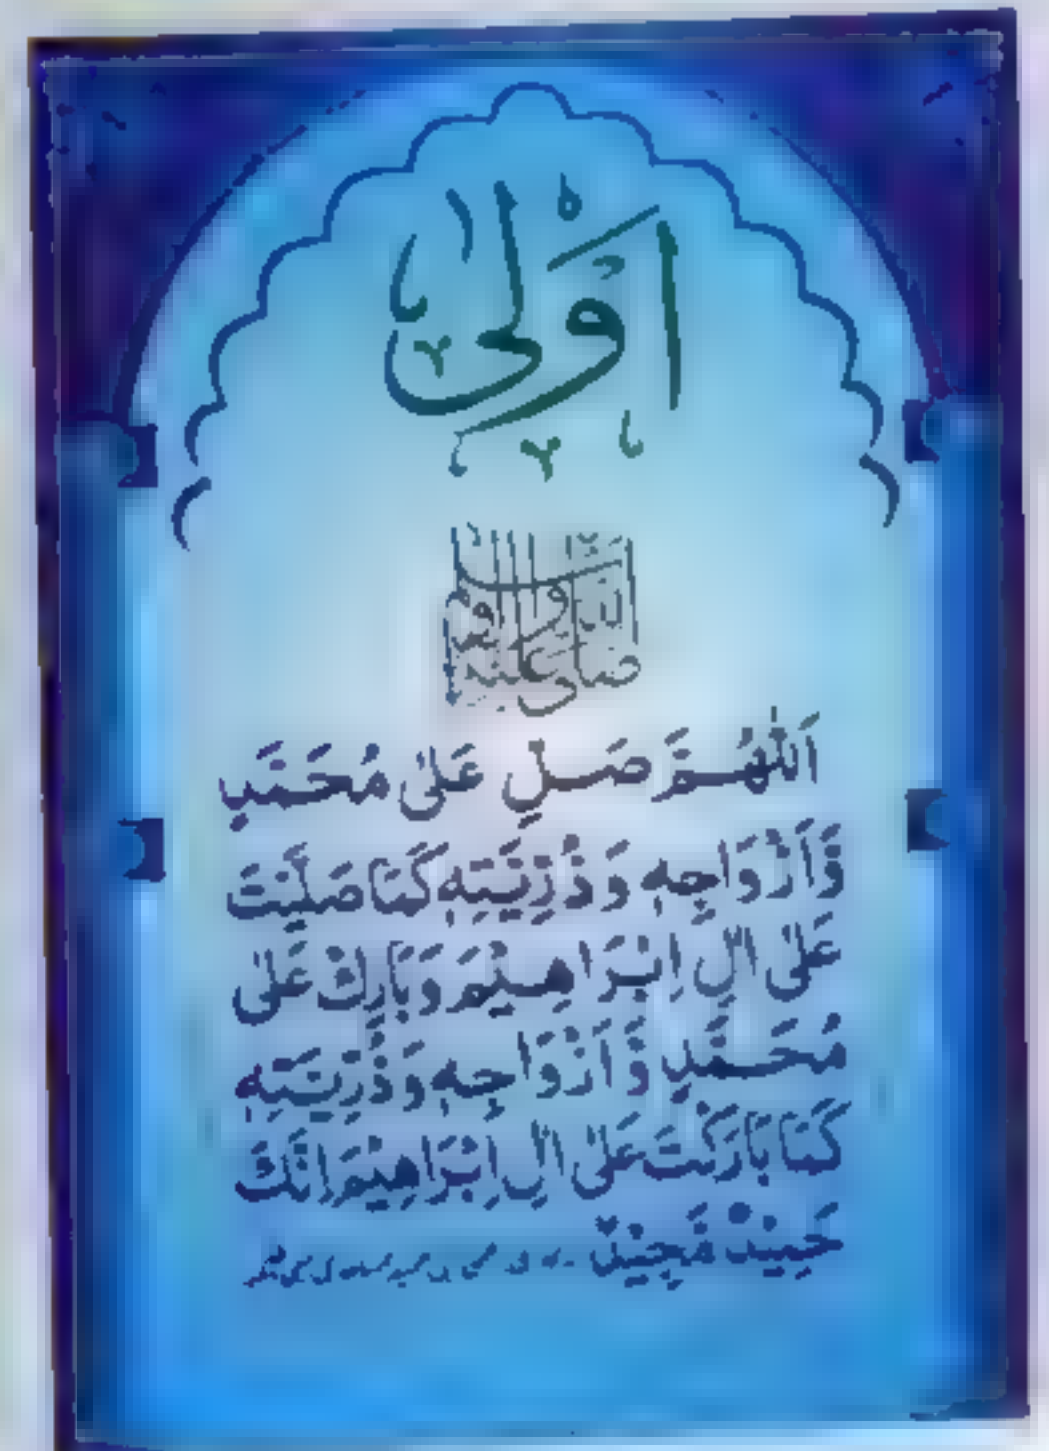 اَوْلٰى
صلى الله عليه وآله وسلم
اَللّٰهُمَّ صَلِّ عَلٰى مُحَمَّدٍ
وَّاَزْوَاجِهٖ وَذُرِّيَّتِهٖ كَمَا صَلَّيْتَ
عَلٰى اٰلِ اِبْرَاهِيْمَ وَبَارِكْ عَلٰى
مُحَمَّدٍ وَّاَزْوَاجِهٖ وَذُرِّيَّتِهٖ
كَمَا بَارَكْتَ عَلٰى اٰلِ اِبْرَاهِيْمَ اِنَّكَ
حَمِيْدٌ مَّجِيْدٌ